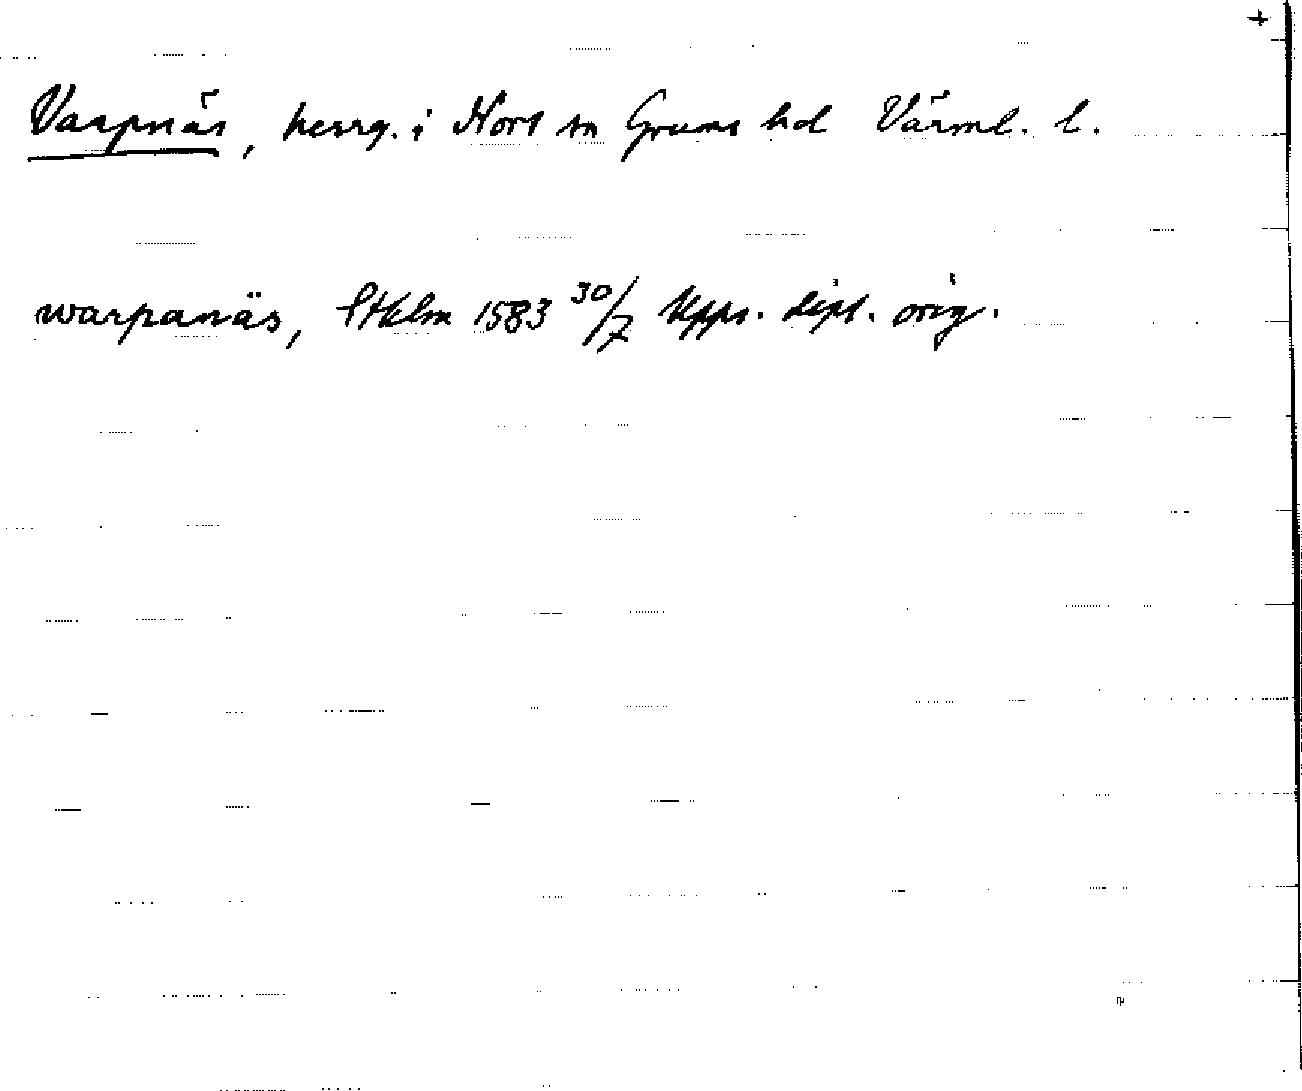 +
Varpnäs, herrg. i Nors sn Grums hd Värml. l.
warpanäs, Sthlm 1583 30/7 Upps. dipl. orig.